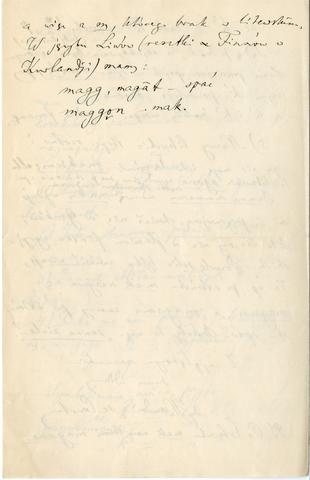 a więc z m, którego brak w litewskim.
W języku Liwów (resztki z Finnów w
Kurlandji) mamy:
magg, magāt – spać
maggon . mak.